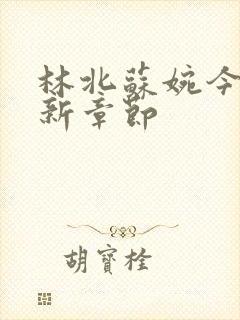 林北蘇婉今
新章節
胡寶栓